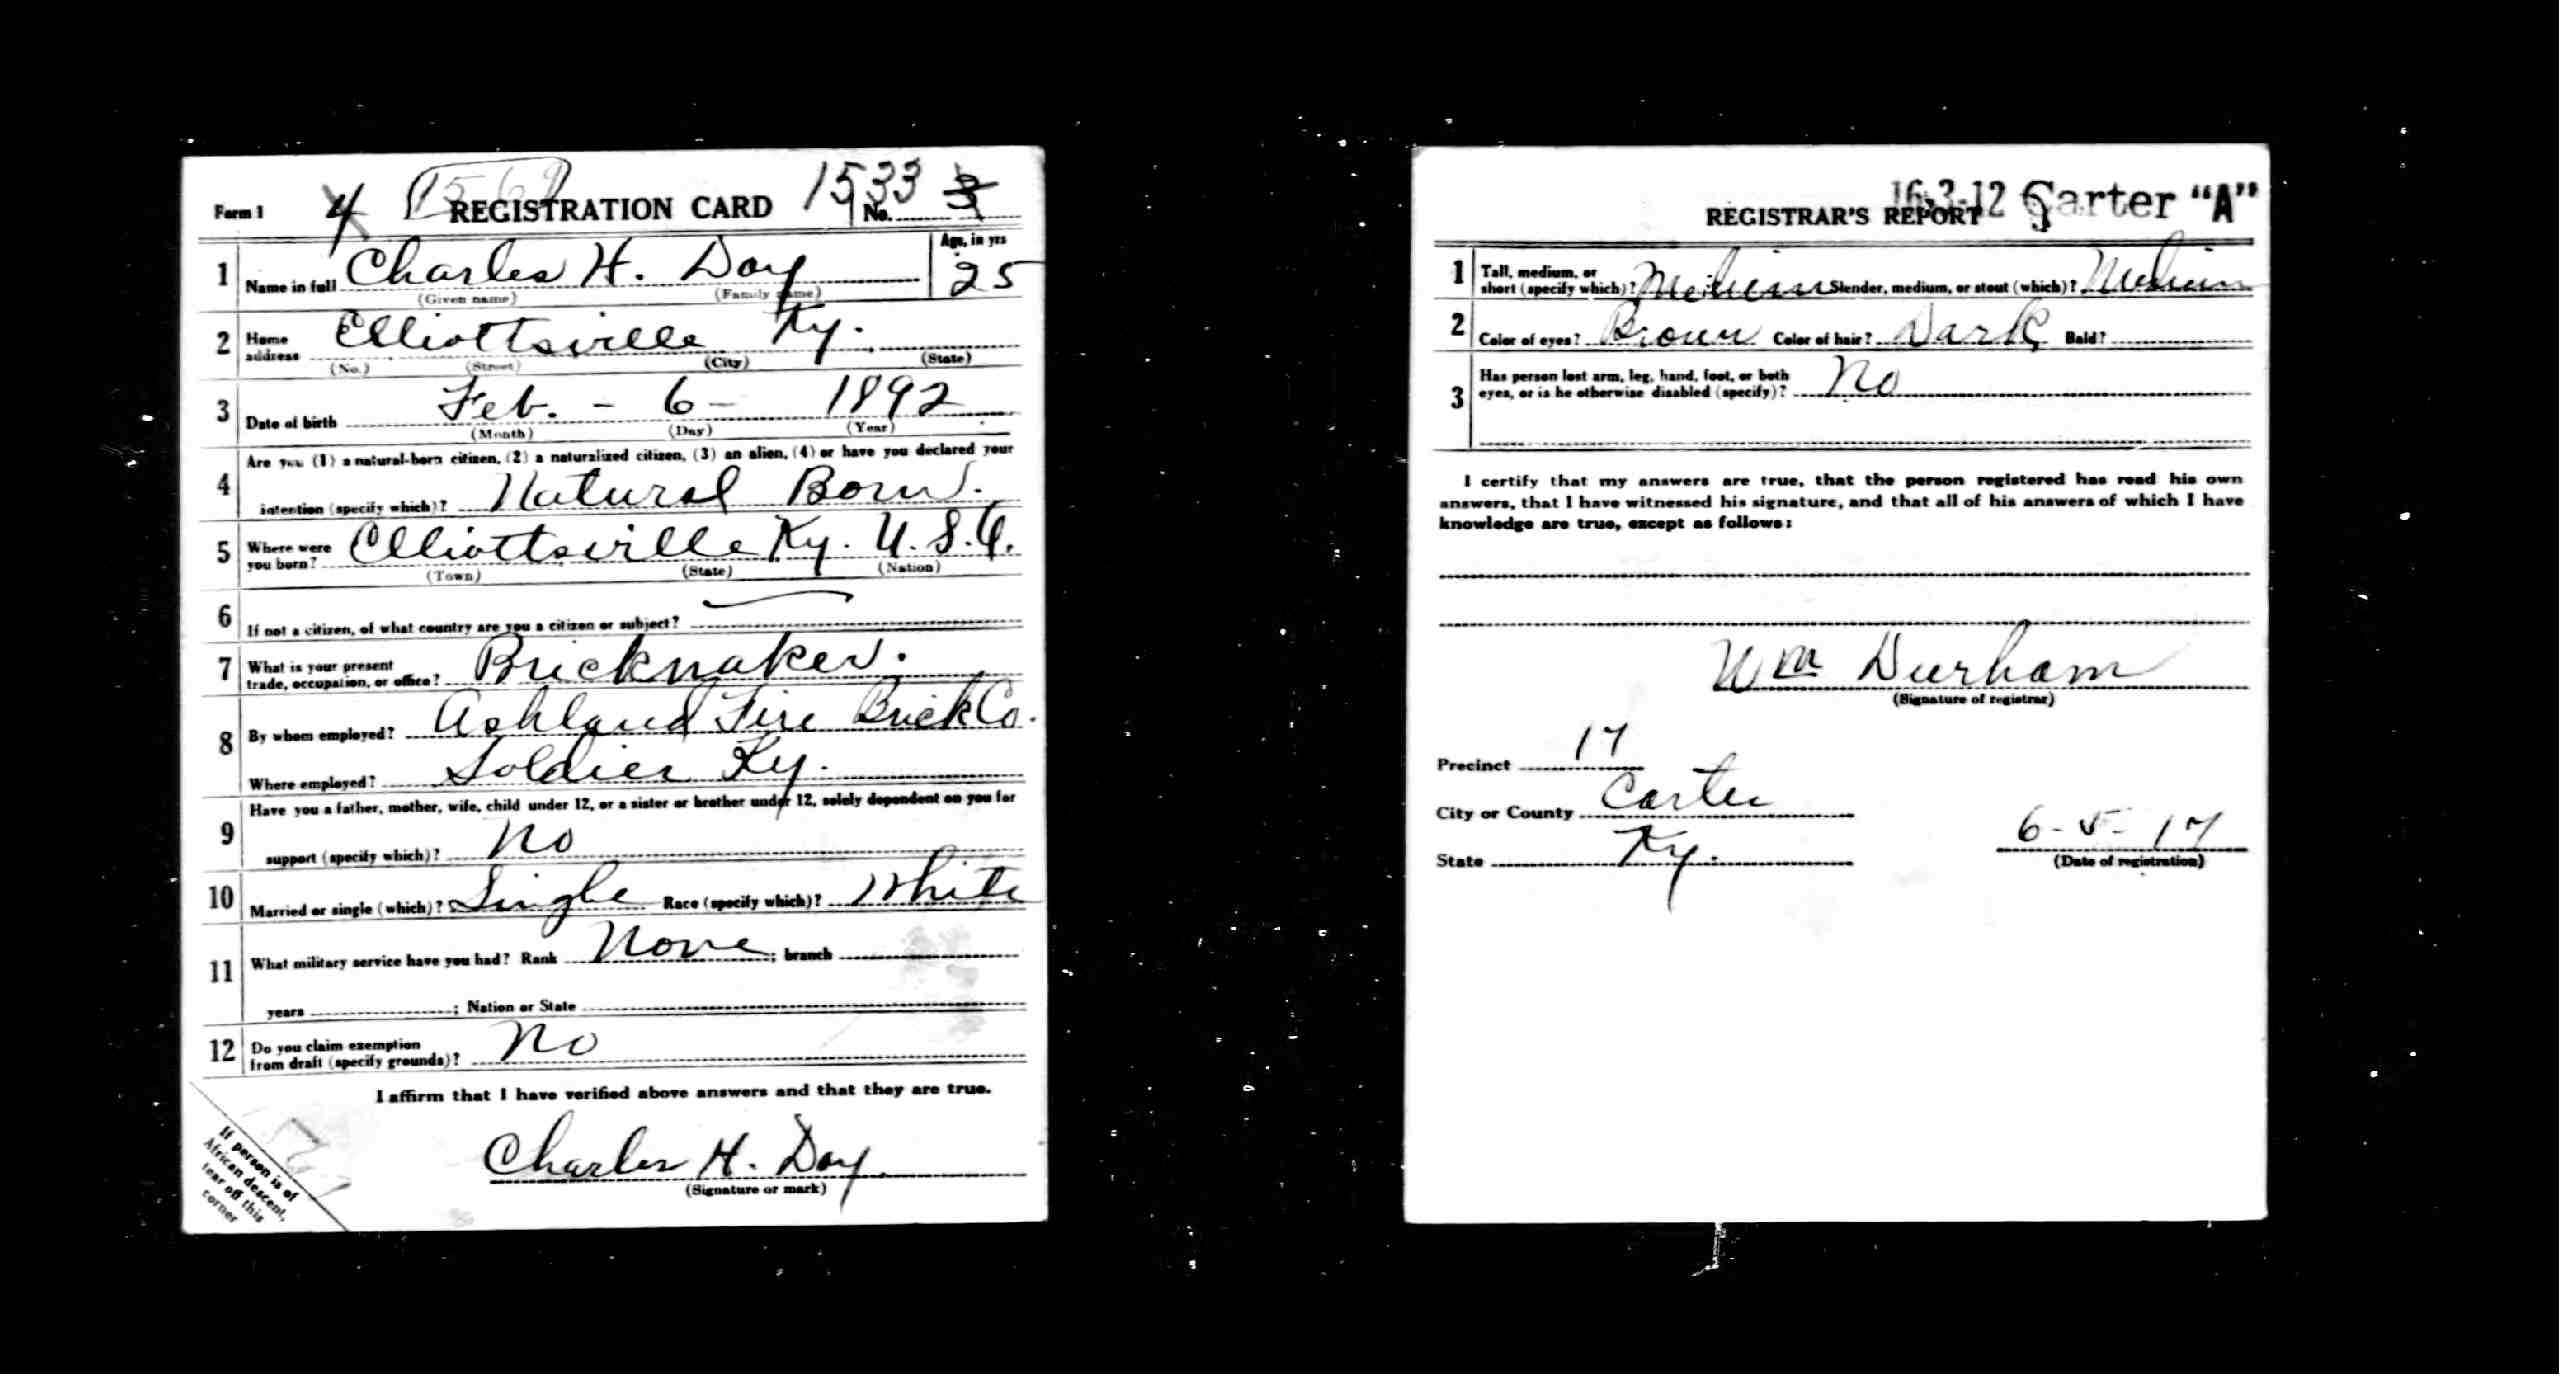 Form 1 4 1569 REGISTRATION CARD 1533 No. 3
1 Name in full Charles H. Day Age, in yrs 25
(Given name) (Family name)
2 Home address Elliottsville Ky.
(No.) (Street) (City) (State)
3 Date of birth Feb. - 6 - 1892
(Month) (Day) (Year)
4 Are you (1) a natural-born citizen, (2) a naturalized citizen, (3) an alien, (4) or have you declared your
intention (specify which)? Natural Born.
5 Where were you born? Elliottsville Ky. U.S.A.
(Town) (State) (Nation)
6 If not a citizen, of what country are you a citizen or subject? —
7 What is your present trade, occupation, or office? Brickmaker.
8 By whom employed? Ashland Fire Brick Co.
Where employed? Soldier Ky.
9 Have you a father, mother, wife, child under 12, or a sister or brother under 12, solely dependent on you for
support (specify which)? No
10 Married or single (which)? Single Race (specify which)? White
11 What military service have you had? Rank None ; branch
years ; Nation or State
12 Do you claim exemption from draft (specify grounds)? No
I affirm that I have verified above answers and that they are true.
Charles H. Day
(Signature or mark)
If person is of
African descent,
tear off this
corner
16-3-12 Carter "A"
REGISTRAR'S REPORT
1 Tall, medium, or short (specify which)? Medium Slender, medium, or stout (which)? Medium
2 Color of eyes? Brown Color of hair? Dark Bald?
3 Has person lost arm, leg, hand, foot, or both
eyes, or is he otherwise disabled (specify)? No
I certify that my answers are true, that the person registered has read his own
answers, that I have witnessed his signature, and that all of his answers of which I have
knowledge are true, except as follows:
Wm Durham
(Signature of registrar)
Precinct 17
City or County Carter
State Ky. 6-5-17
(Date of registration)